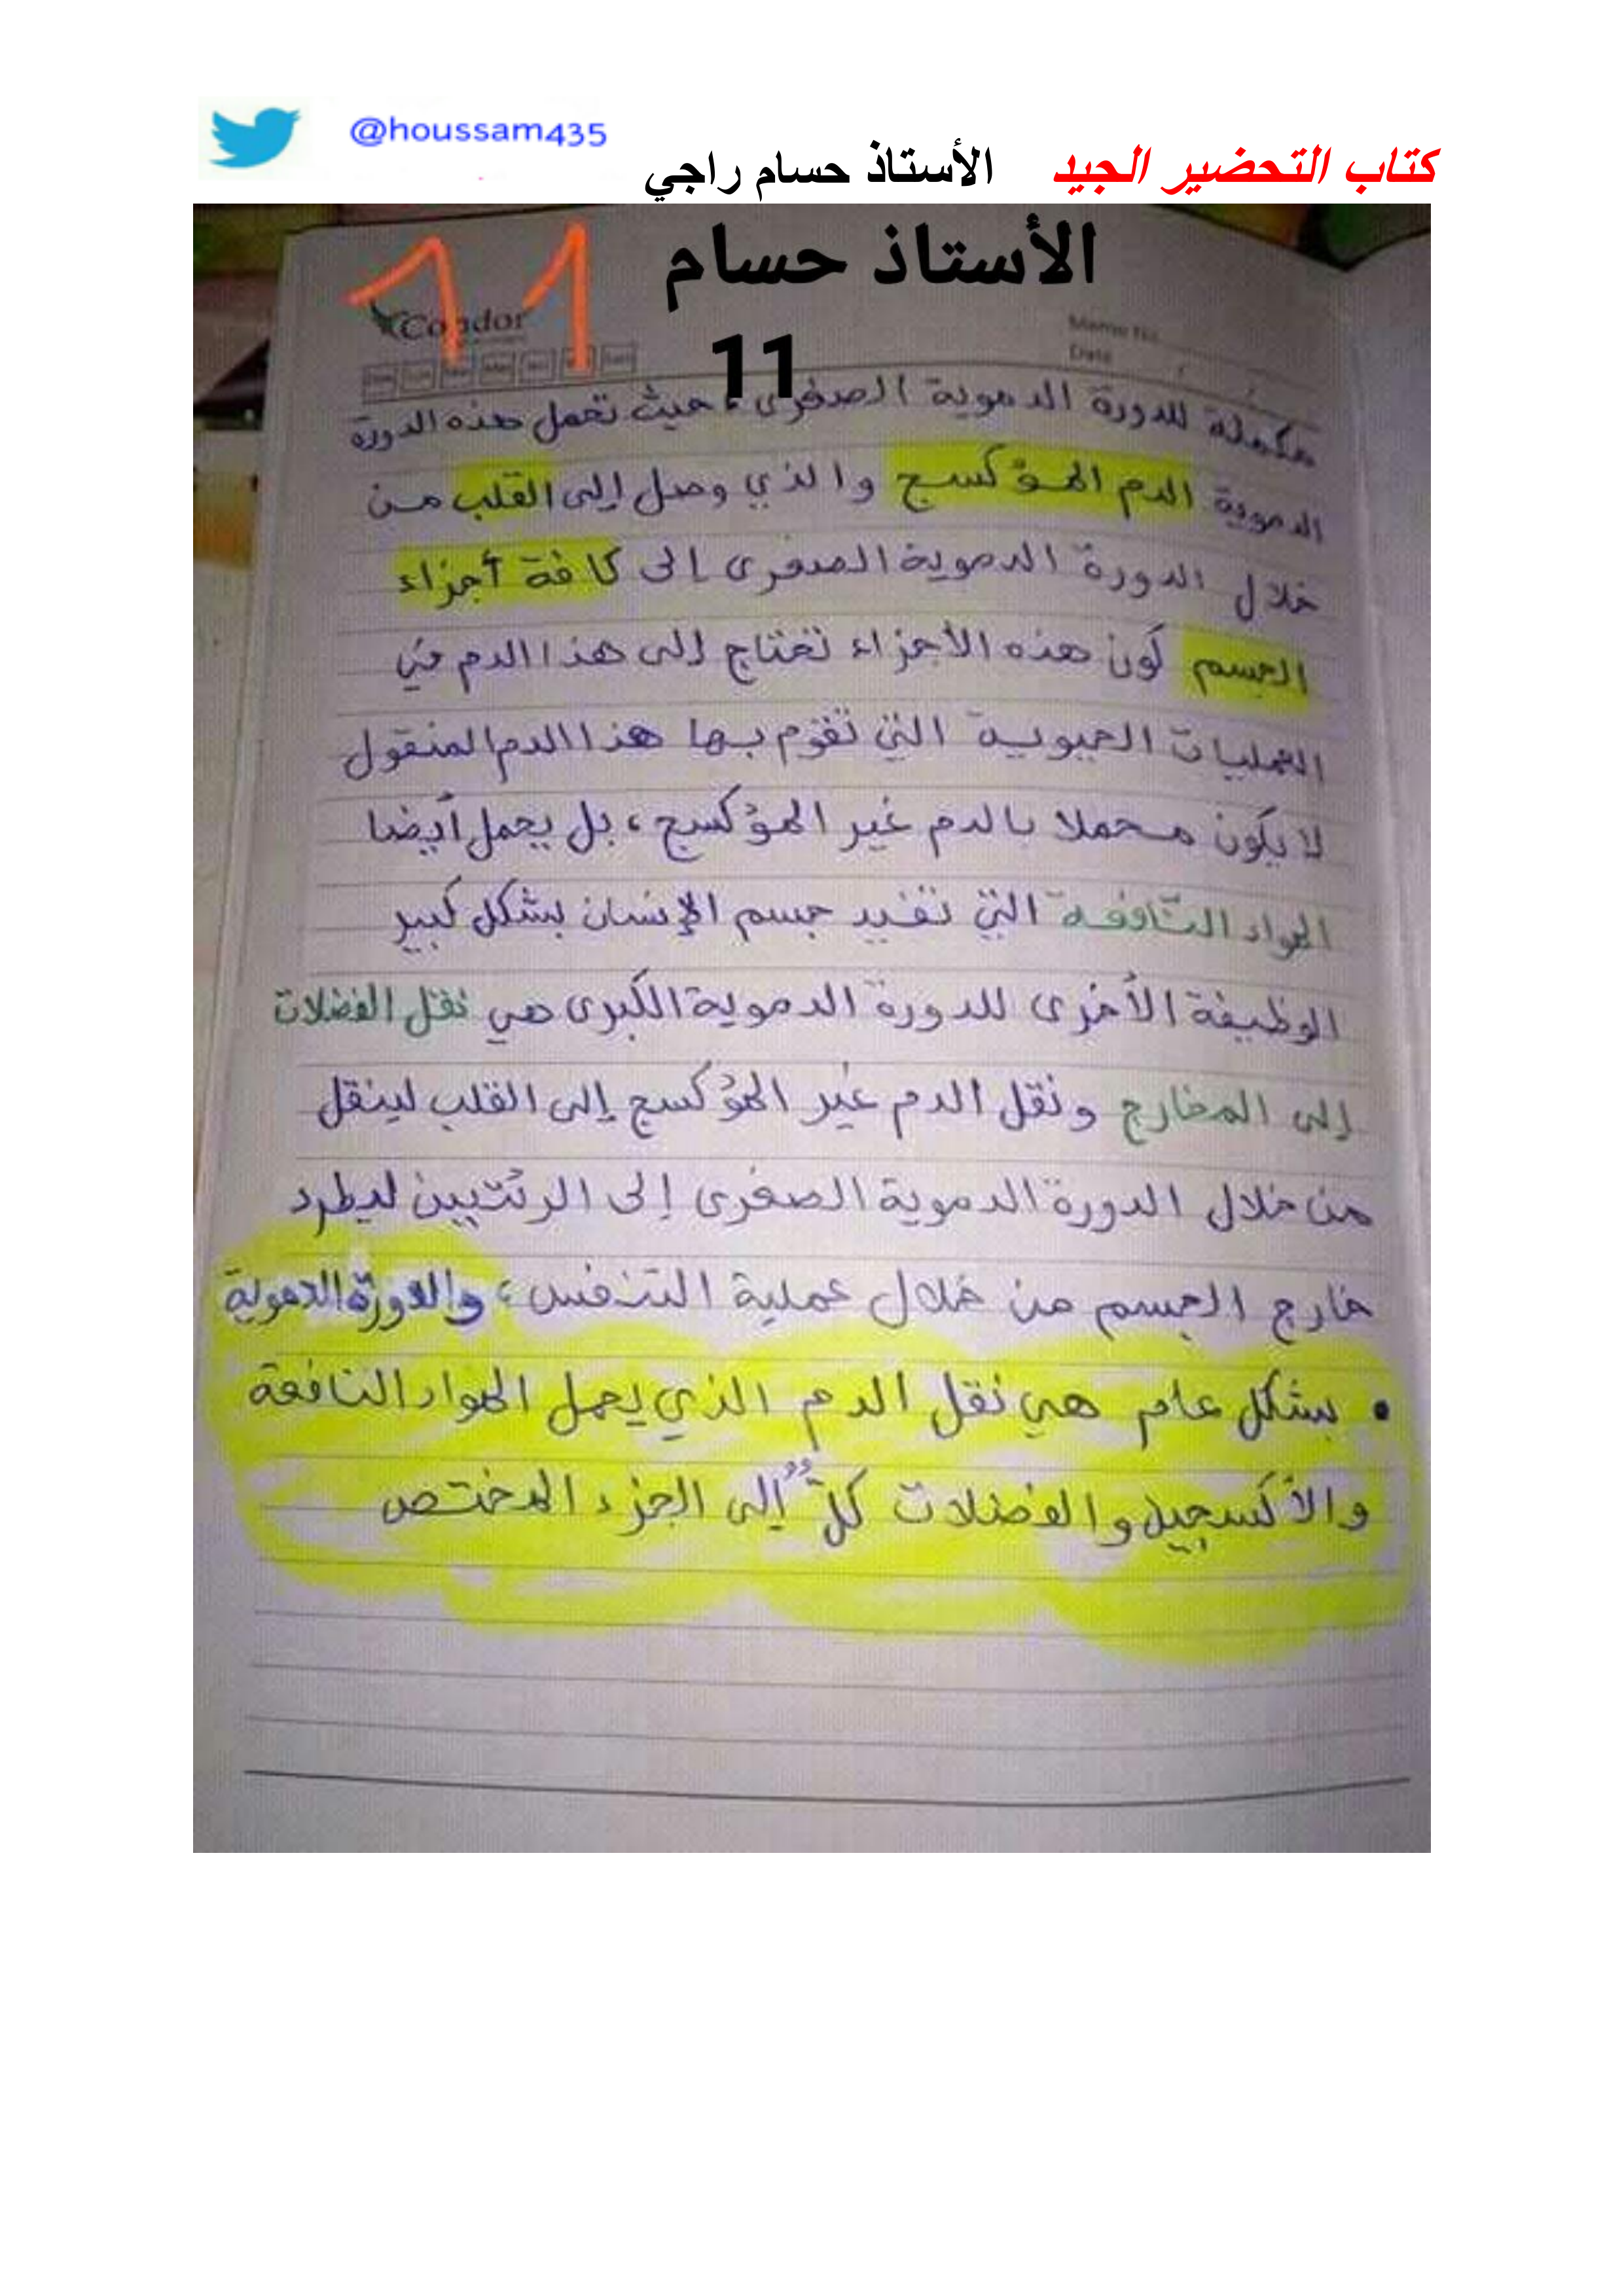 @houssam435
كتاب التحضير الجيد الأستاذ حسام راجي
الأستاذ حسام
11
11
Condor
Memo No
Date
مكملة للدورة الدموية الصغرى، حيث تحمل هذه الدورة
الدموية الدم المؤكسج والذي وصل إلى القلب من
خلال الدورة الدموية الصغرى إلى كافة أجزاء
الجسم كون هذه الأجزاء تحتاج إلى هذا الدم في
العمليات الحيوية التي تقوم بها هذا الدم المنقول
لا يكون محملا بالدم غير المؤكسج، بل يحمل أيضا
المواد النّافعة التي تفيد جسم الإنسان بشكل كبير
الوظيفة الأخرى للدورة الدموية الكبرى هي نقل الفضلات
إلى المخارج ونقل الدم غير المؤكسج إلى القلب لينقل
من خلال الدورة الدموية الصغرى إلى الرئتيين ليطرد
خارج الجسم من خلال عملية التنفس، والدورة الدموية
• بشكل عام هي نقل الدم الذي يحمل المواد النافعة
والأكسجين والفضلات كلٌّ إلى الجزء المختص